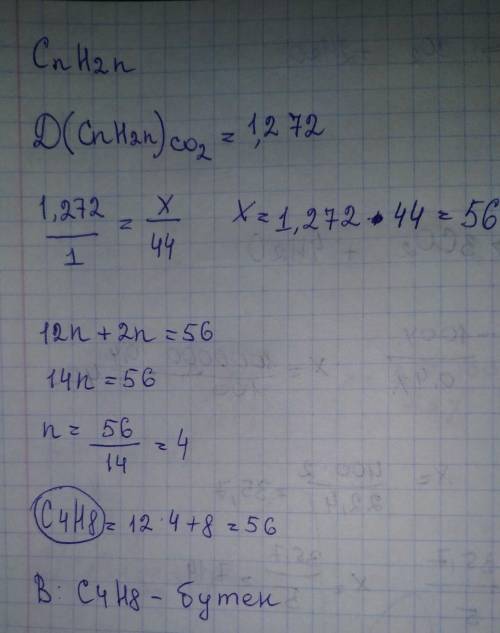 CnH2n
D(CnH2n)CO2 = 1,272
1,272/1 = x/44 x = 1,272 • 44 = 56
12n + 2n = 56
14n = 56
n = 56/14 = 4
C4H8 = 12 · 4 + 8 = 56
В: C4H8 - бутен